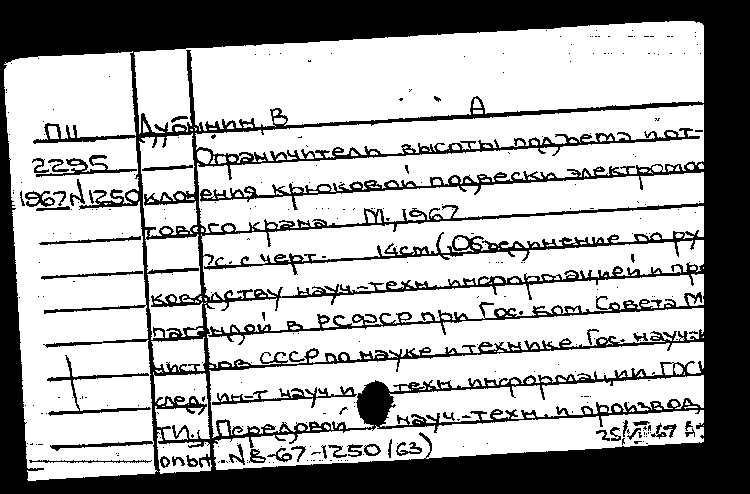 П11 Дубынин, В А
2295 Ограничитель высоты подъема и от-
1967 N1250 клонения крюковой подвески электромос
тового крана. М., 1967
2с. с черт. 14см. (Объединение по ру
ководству науч.-техн. информацией и про
пагандой в РСФСР при Гос. ком. Совета Ми
нистров СССР по науке и технике. Гос. науч.-и
след. ин-т науч. и техн. информации. ГОСИ
ТИ., Передовой науч.-техн. и производ
опыт. N 3-67-1250 (63) 25/VII-67